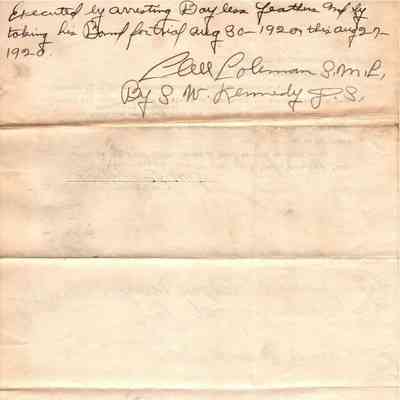 Executed by arresting Bayless Feathers and by
taking his Bond for trial Aug 30 - 1920 on this Aug 27
1920.
Coleman S.M.C.
By S. W. Kennedy D.S.